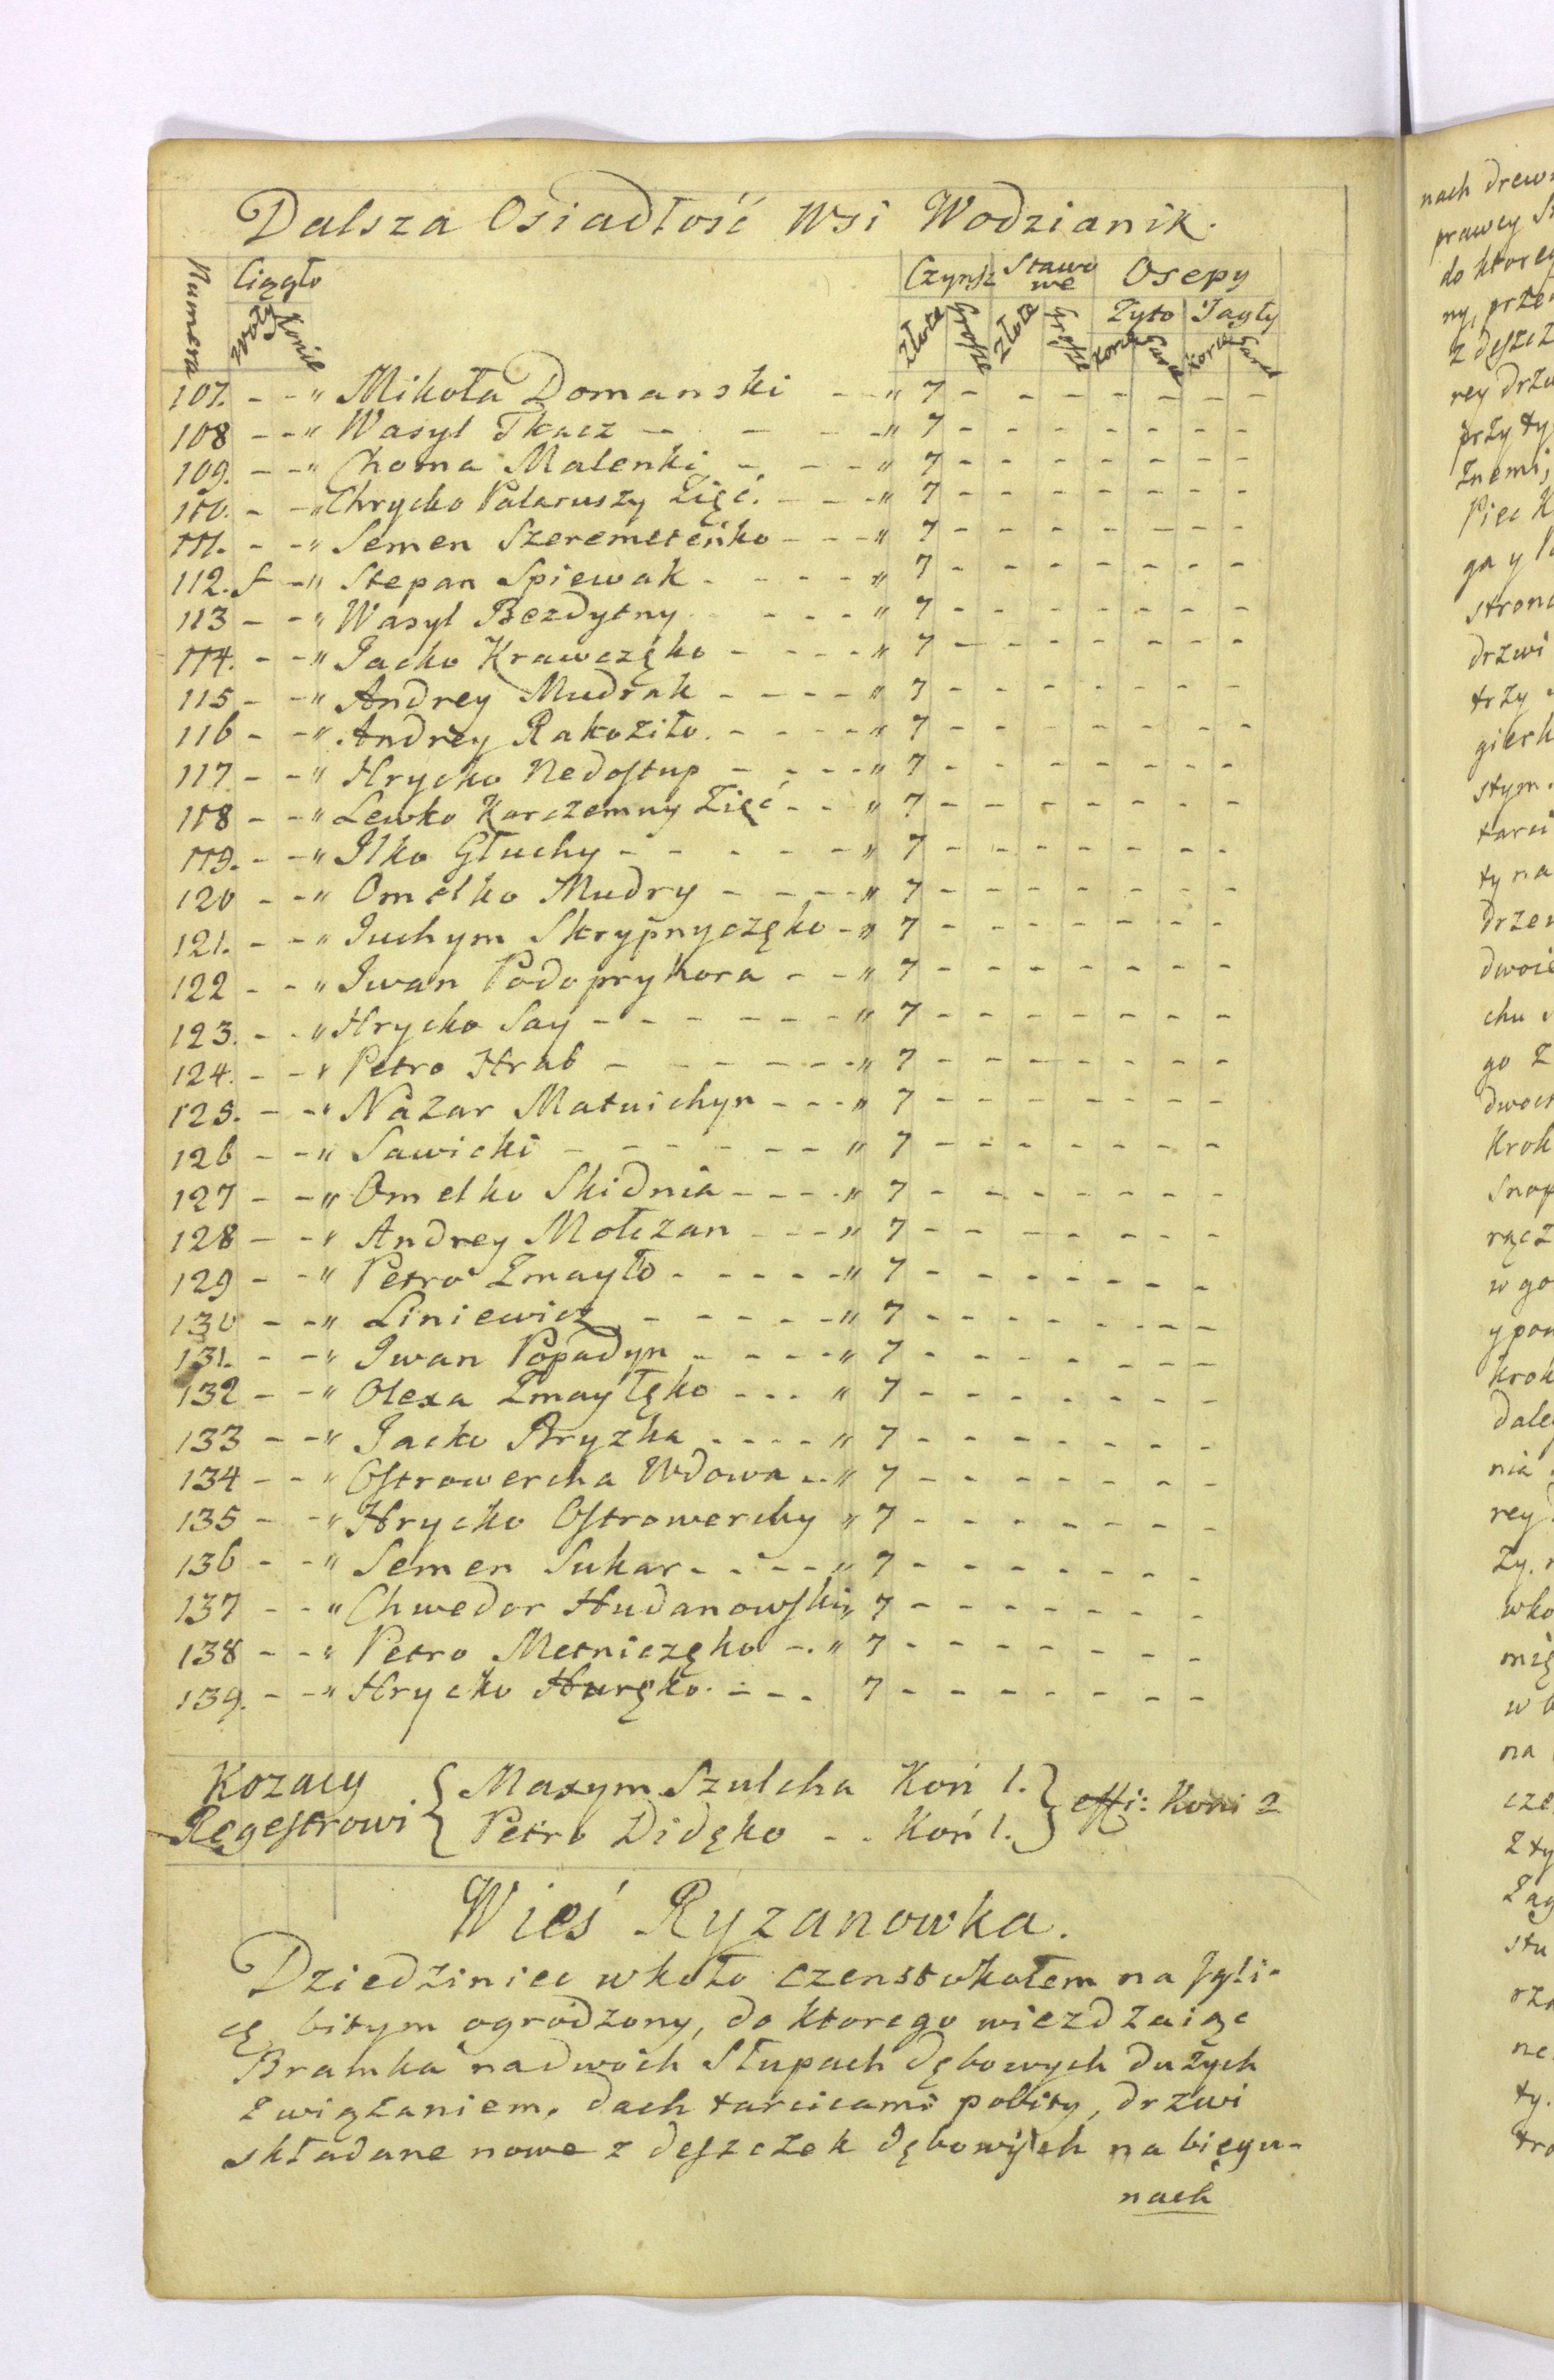 Dalsza Osiadłość Wsi Wodzianik.
Numera Ciągło Czynsz Stawowe Osepy
Woły Konie Złote Grosze Złote Grosze Zyto Jagły
Korcy Garce Korcy Garce
107. - - " Mikoła Domanski - - " 7 - - - - - - - -
108 - - " Wasyl Tkacz - - - - " 7 - - - - - - - -
109. - - " Choma Malenki - - - " 7 - - - - - - - -
110. - - " Chrycko Palaruszy Zięć. - - - " 7 - - - - - - - -
111. - - " Semen Szeremeteńko - - - " 7 - - - - - - - -
112. f - " Stepan Spiewak - - - - " 7 - - - - - - - -
113 - - " Wasyl Bezdytny - - - - " 7 - - - - - - - -
114. - - " Jacko Krawczęko - - - - " 7 - - - - - - - -
115 - - " Andrey Mudrak - - - - " 7 - - - - - - - -
116 - - " Andrey Rakoziło. - - - - " 7 - - - - - - - -
117. - - " Hrycko Nedostup - - - - " 7 - - - - - - - -
118 - - " Lewko Karczemny Zięć - - " 7 - - - - - - - -
119. - - " Ilko Głuchy - - - - - - " 7 - - - - - - - -
120 - - " Omelko Mudry - - - - " 7 - - - - - - - -
121. - - " Juchym Skrypnyczęko - " 7 - - - - - - - -
122 - - " Iwan Podopryhora - - " 7 - - - - - - - -
123. - - " Hrycko Say - - - - - - " 7 - - - - - - - -
124. - - " Petro Hrab - - - - - - " 7 - - - - - - - -
125. - - " Nazar Matuichyn - - - " 7 - - - - - - - -
126 - - " Sawicki - - - - - - " 7 - - - - - - - -
127 - - " Omelko Skidnia - - - - " 7 - - - - - - - -
128 - - " Andrey Mołczan - - - " 7 - - - - - - - -
129 - - " Petro Zmayło - - - - - " 7 - - - - - - - -
130 - - " Liniewicz - - - - - " 7 - - - - - - - -
131. - - " Iwan Popadyn - - - - " 7 - - - - - - - -
132 - - " Olexa Zmayłęko - - - " 7 - - - - - - - -
133 - - " Jacko Bryzha - - - - " 7 - - - - - - - -
134 - - " Ostrowercha Wdowa - - " 7 - - - - - - - -
135 - - " Hrycko Ostrowerchy " 7 - - - - - - - -
136 - - " Semen Sukar - - - - " 7 - - - - - - - -
137 - - " Chwedor Hudanowski " 7 - - - - - - - -
138 - - " Petro Metniczęko - . " 7 - - - - - - - -
139. - - " Hrycko Huręko. - - - 7 - - - - - - - -
Kozacy Regestrowi { Maxym Szulcha Koń 1.
Petro Didęko - . Koń 1. } effi: Koni 2
Wieś Ryzanowka.
Dziedziniec wkoło czenstokołem na Jyli-
cę bitym ogrodzony, do ktorego wiezdzaiąc
Bramka na dwoch Słupach dębowych dużych
z wiązaniem, dach tarcicami pobity, drzwi
składane nowe z deszczek dębowych na biegu-
nach
nach drew
prawey
do ktorey
rey
przy ty
ga y
drzwi
trzy
stym.
ty na
dwoie
chu
go Z
Krok
w go
krok
nia
rey
na